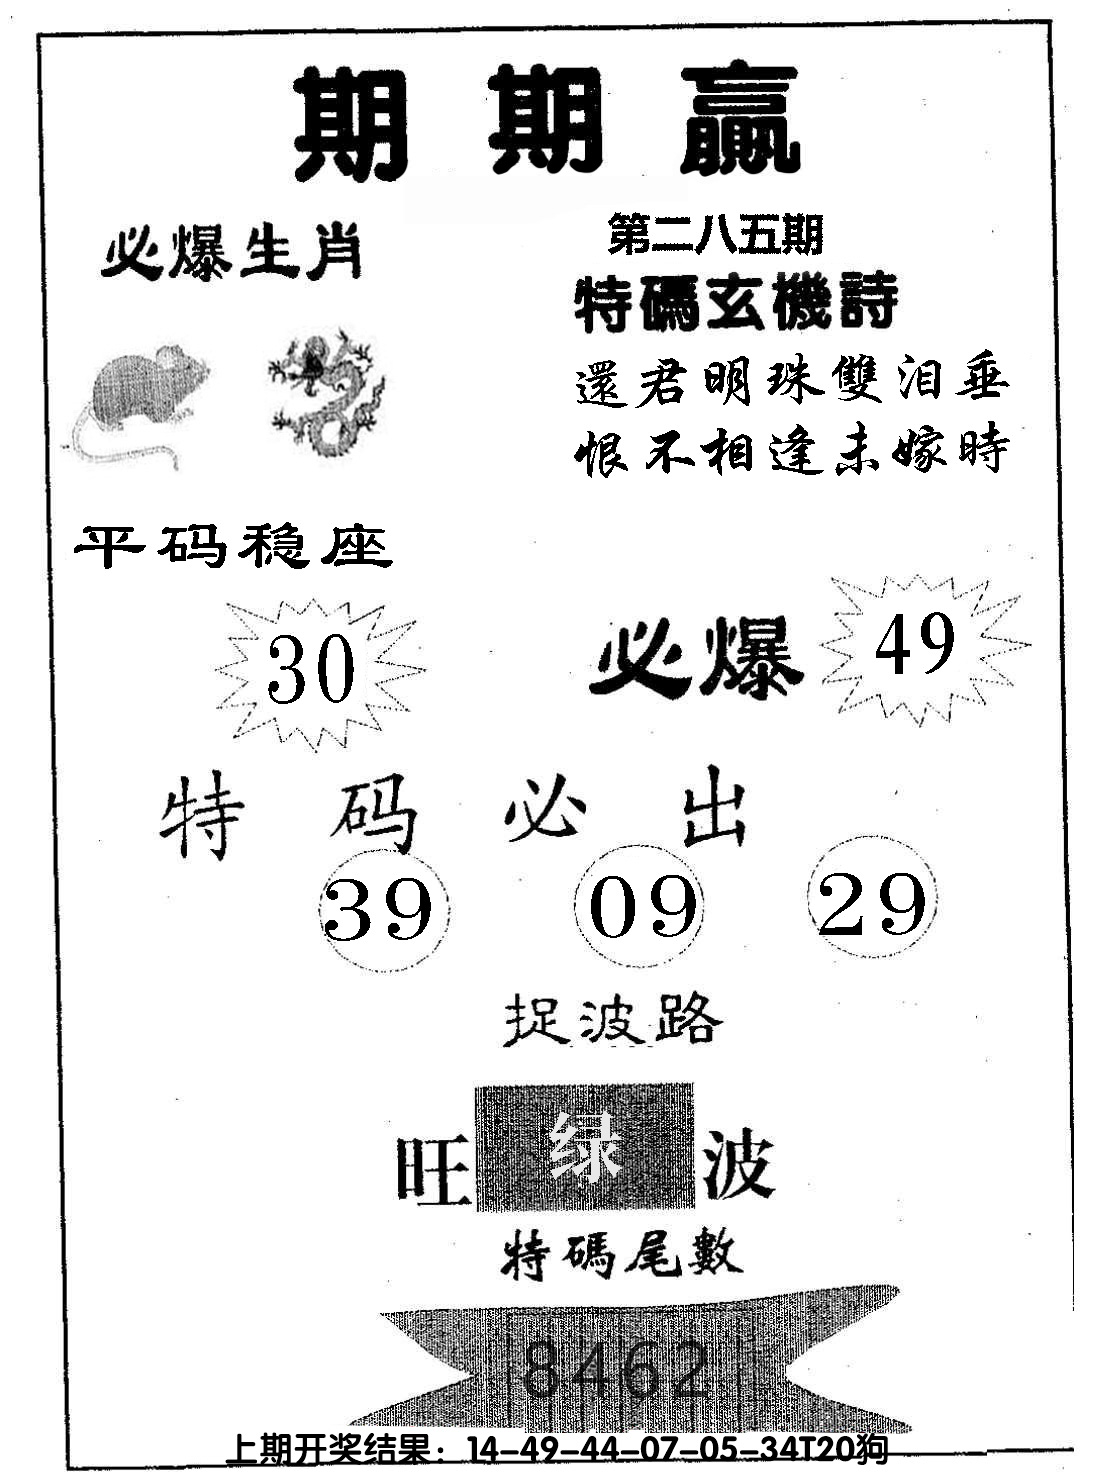 期期赢
必爆生肖
第二八五期
特碼玄機詩
還君明珠雙泪垂
恨不相逢未嫁時
平码稳座
30
必爆 49
特码必出
39 09 29
捉波路
旺 绿 波
特碼尾數
8462
上期开奖结果：14-49-44-07-05-34T20狗